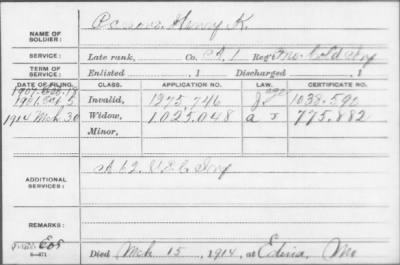 NAME OF SOLDIER: Henry K.
SERVICE: Late rank, Co. A, 1 Reg't Mo. Cold Inf
TERM OF SERVICE: Enlisted , 1 Discharged , 1
DATE OF FILING. CLASS. APPLICATION NO. LAW. CERTIFICATE NO.
1901. Invalid, 1275,746 1038.590
1914 Mch. 30 Widow, 1.025.048 a J 775.882
Minor,
ADDITIONAL SERVICES: A 62 U.S.C. Inf
REMARKS:
Died Mch 15, 1914, at Edina, Mo